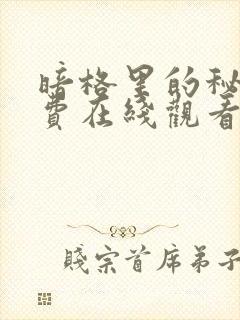 暗格里的秘
費在綫觀看
賤宗首席弟子